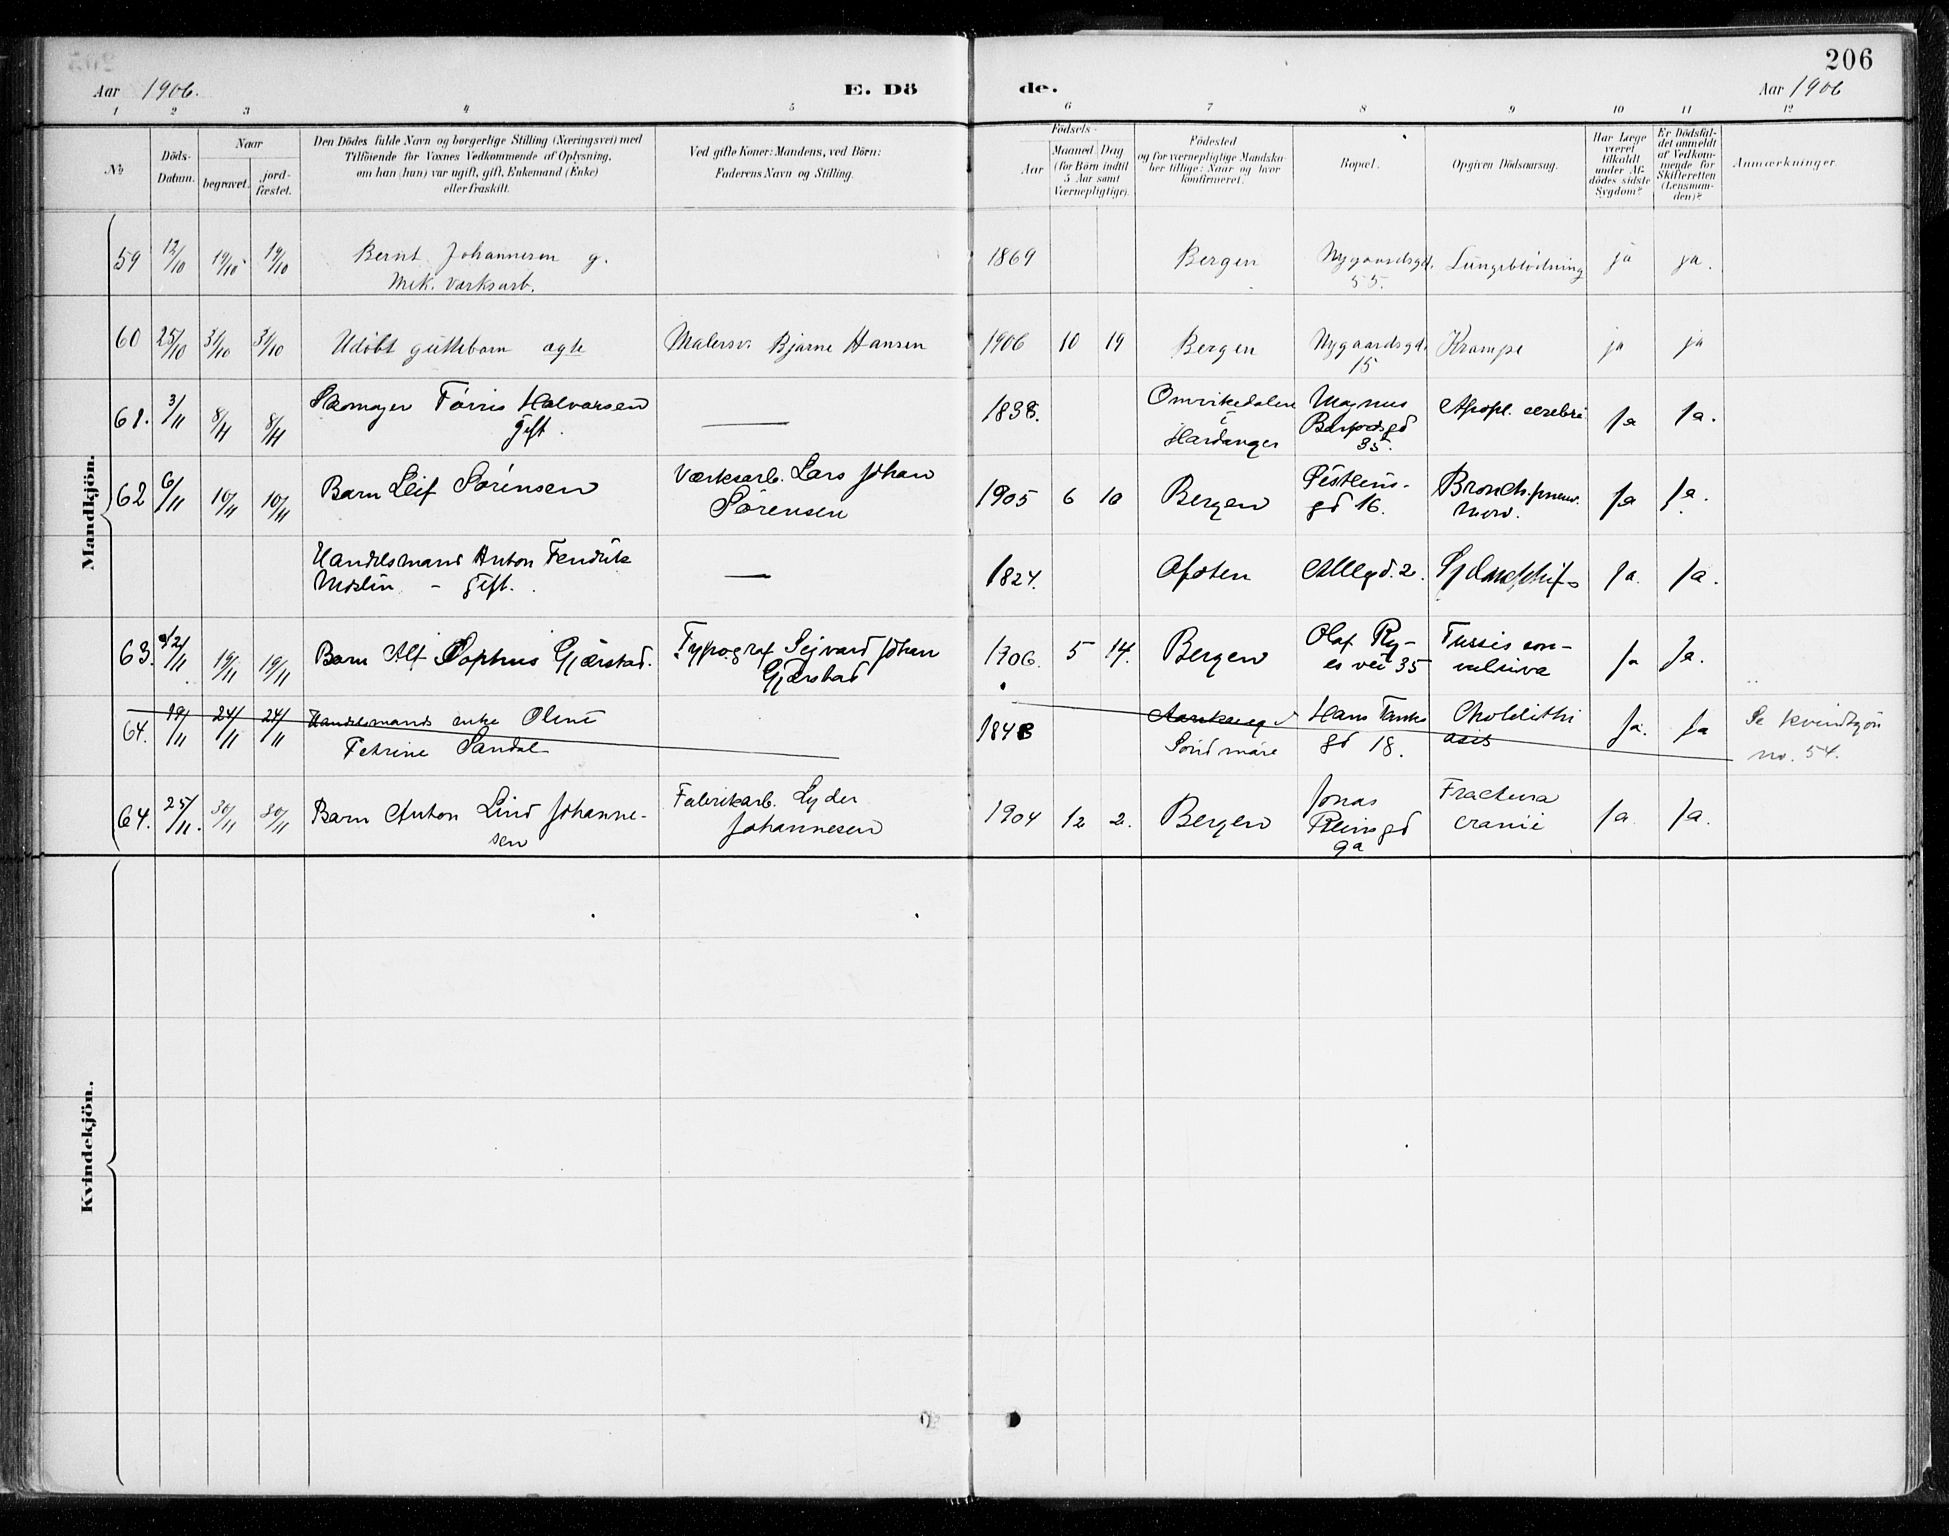 206
Aar 1906.
E. Dö
de.
Aar 1906
1 2 3 4 5 6 7 8 9 10 11 12
№
Döds-
Datum.
Naar
begravet.
jord-
fæstet.
Den Dödes fulde Navn og borgerlige Stilling (Næringsvei) med
Tilföiende for Voxnes Vedkommende af Oplysning,
om han (hun) var ugift, gift, Enkemand (Enke)
eller fraskilt.
Ved gifte Koner: Mandens, ved Börn:
Faderens Navn og Stilling.
Födsels-
Aar
Maaned Dag
(for Börn indtil
5 Aar samt
Værnepligtige).
Födested
og for værnepligtige Mandska-
ber tillige: Naar og hvor
konfirmeret.
Bopæl.
Opgiven Dödsaarsag.
Har Læge
været
tilkaldt
under Af-
dödes sidste
Sygdom?
Er Dödsfal-
det anmeldt
af Vedkom-
mende for
Skifteretten
(Lensman-
den)?
Anmærkninger.
Mandkjön.
59 12/10 19/10 19/10 Bernt Johannesen g. 1869 Bergen Nygaardsgd. Lungeblödning ja ja.
Mek. Værksarb. 55.
60 25/10 31/10 31/10 Udöbt guttebarn ægte Malersv. Bjarne Hansen 1906 10 19 Bergen Nygaardsgd. Krampe ja ja
15
61. 3/11 8/11 8/11 Skomager Halvorsen 1838. Omvikedalen Magnus Apopl. cerebri Ja Ja.
Gift. — i gd
Hardanger 35.
62 6/11 10/11 10/11 Barn Leif Sörensen Værksarb. Lars Johan 1905 6 10 Bergen Bronch. pneu- Ja Ja.
Sörensen gd 16.
Handelsmand Anton — 1824. Ja. Ja.
— Gift. Allégd. 2.
63. 12/11 19/11 19/11 Barn Alf Sophus Gjærstad. Typograf Sejvard Johan 1906. 5 14. Bergen Olaf Ry- Tussis con- Ja Ja.
Gjærstad es vei 35 vulsiva
64. 19/11 24/11 24/11 Handelsmands enke Oline Hans Tanks Ja. Ja Se kvindkjön
Petrine Sandal Söndmöre gd 18. no. 54.
64. 25/11. 30/11 30/11 Barn Anton Lind Johanne- Fabrikarb. Lyder 1904 12 2. Bergen Jonas Fractura Ja Ja.
sen Johannesen Reinsgd cranii
9a
Kvindekjön.